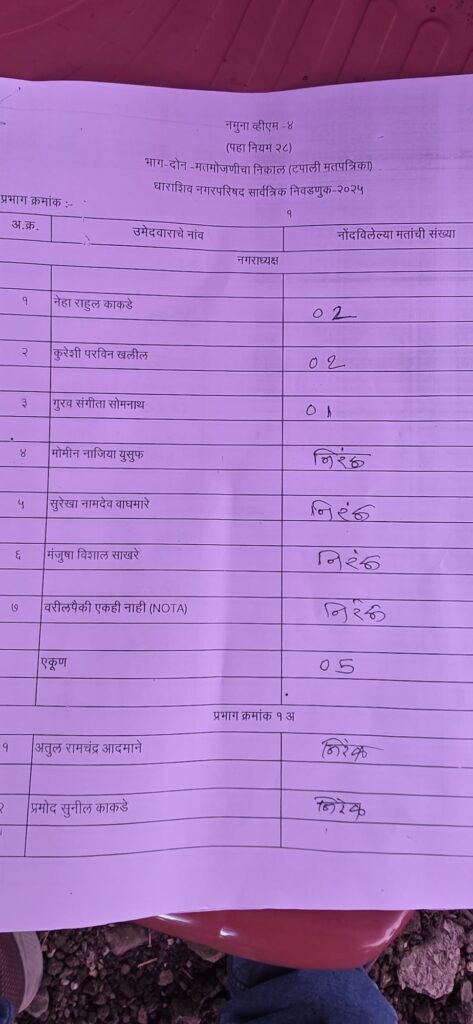 नमुना व्हीएम -४
(पहा नियम २८)
भाग-दोन -मतमोजणीचा निकाल (टपाली मतपत्रिका)
धाराशिव नगरपरिषद सार्वत्रिक निवडणुक-२०२५
प्रभाग क्रमांक :- १
अ.क्र. उमेदवाराचे नांव नोंदविलेल्या मतांची संख्या
नगराध्यक्ष
१ नेहा राहुल काकडे 02
२ कुरेशी परविन खलील 02
३ गुरव संगीता सोमनाथ 01
४ मोमीन नाजिया युसुफ निरंक
५ सुरेखा नामदेव वाघमारे निरंक
६ मंजुषा विशाल साखरे निरंक
७ वरीलपैकी एकही नाही (NOTA) निरंक
एकूण 05
प्रभाग क्रमांक १ अ
१ अतुल रामचंद्र आदमाने निरंक
२ प्रमोद सुनील काकडे निरंक